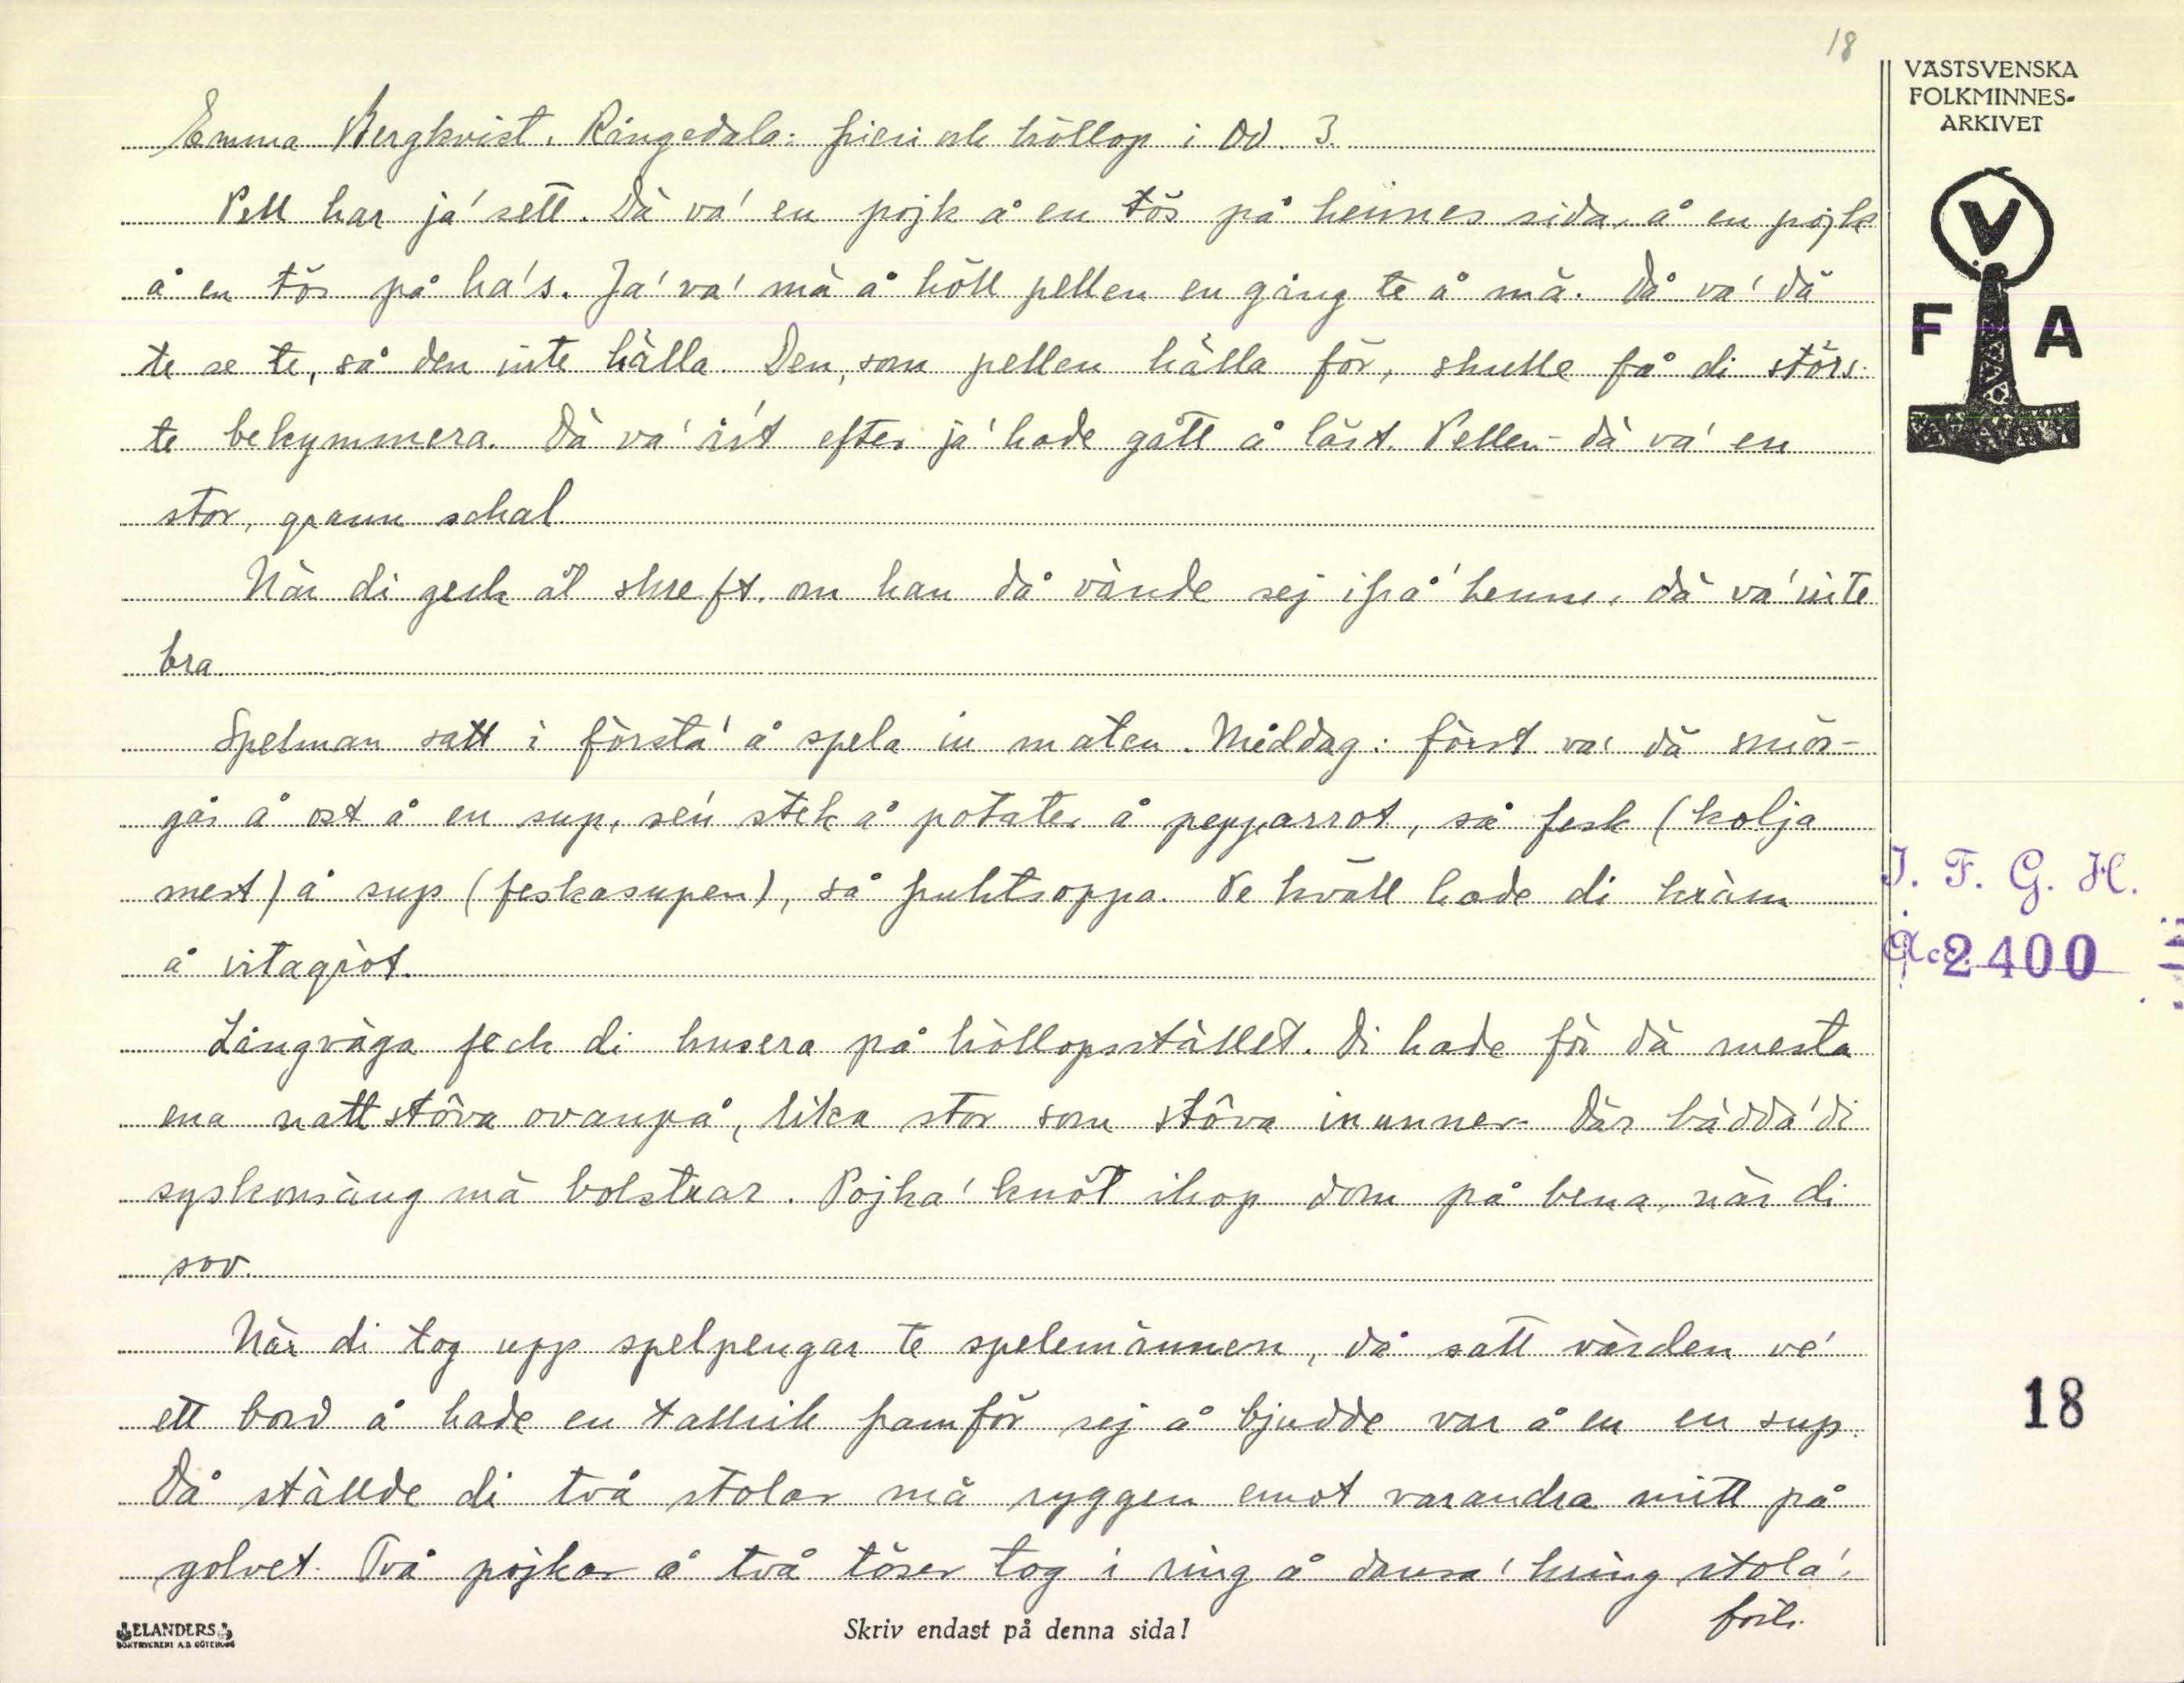 18
VÄSTSVENSKA
FOLKMINNES-
ARKIVET
V
F A
Emma Bergkvist, Rångedala: frieri och höllop i Od. 3.
Pell har ja' sett. Dä va' en pojk å en tös på hennes sida, å en pojk
å en tös på ha's. Ja' va' mä å höll pellen en gång te å mä. Då va' dä
te se te, så den inte hälla. Den, som pellen hälla för, skulle få di störs-
te bekymmera. Dä va' åst efter ja' hade gått å läst. Pellen - dä va' en
stor, grann schal
När di geck åt skreft, om han då vände sej ifrå' henne, dä va' inte
bra.
Spelman satt i första' å spela in maten. Middag: först va' dä smör-
gås å ost å en sup, sén stek å potater å pepparrot, så fesk (kolja
mest) å sup (feskasupen), så fruktsoppa. Te kväll hade di kräm
å vitagröt.
Långväga feck di husera på höllopsstället. Di hade för dä mesta
ena nattstôva ovanpå, lika stor som stôva inunner. Där bädda' di
syskonsäng mä bolstrar. Pojka' knöt ihop dom på bena, när di
sov.
När di tog upp spelpengar te spelemännen, då satt värden ve'
ett bord å hade en tallrik framför sej å bjudde var å en en sup.
Då ställde di två stolar mä ryggen emot varandra mitt på
golvet. Två pojkar å två töser tog i ring å dansa' kring stola'.
forts.
I. F. G. H.
Acc. 2400
18
ELANDERS
BOKTRYCKERI A.B. GÖTEBORG
Skriv endast på denna sida!